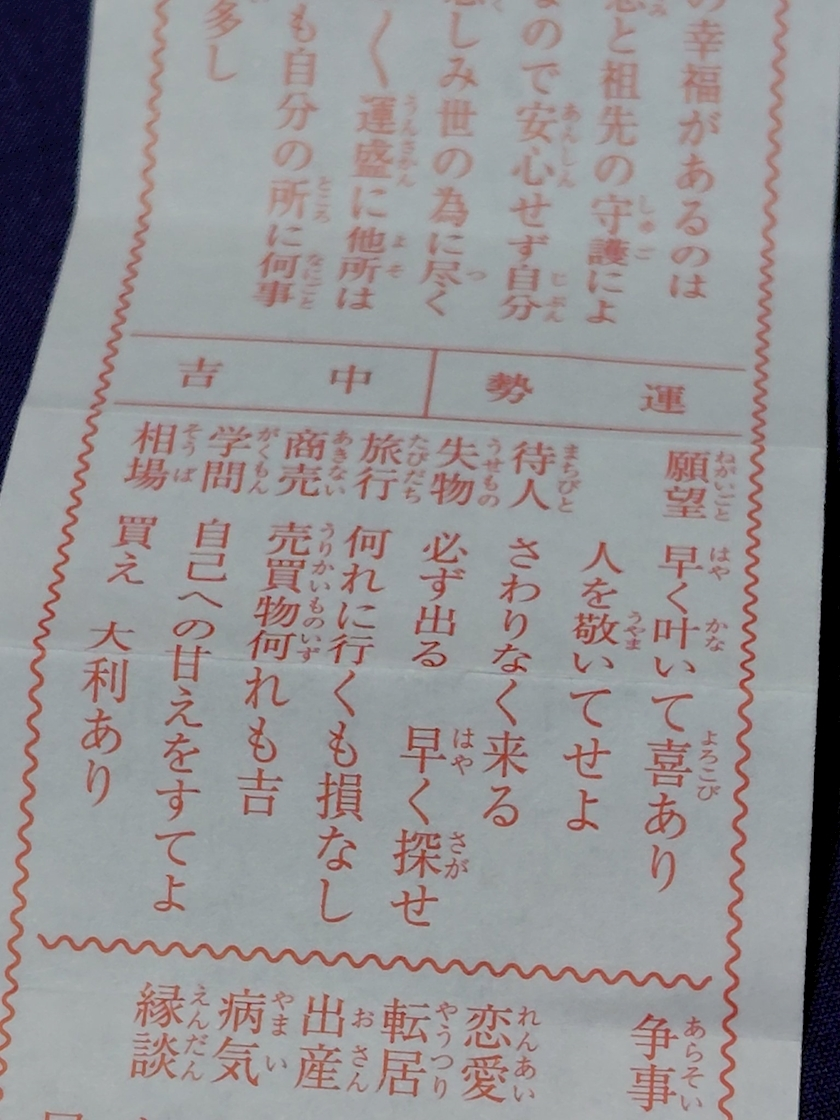 の幸福があるのは
と祖先の守護によ
なので安心せず自分
しみ世の為に尽く
く運盛に他所は
も自分の所に何事
多し
運勢 中吉
願望 早く叶いて喜あり
人を敬いてせよ
待人 さわりなく来る
失物 必ず出る 早く探せ
旅行 何れに行くも損なし
商売 売買物何れも吉
学問 自己への甘えをすてよ
相場 買え 大利あり
争事
恋愛
転居
出産
病気
縁談